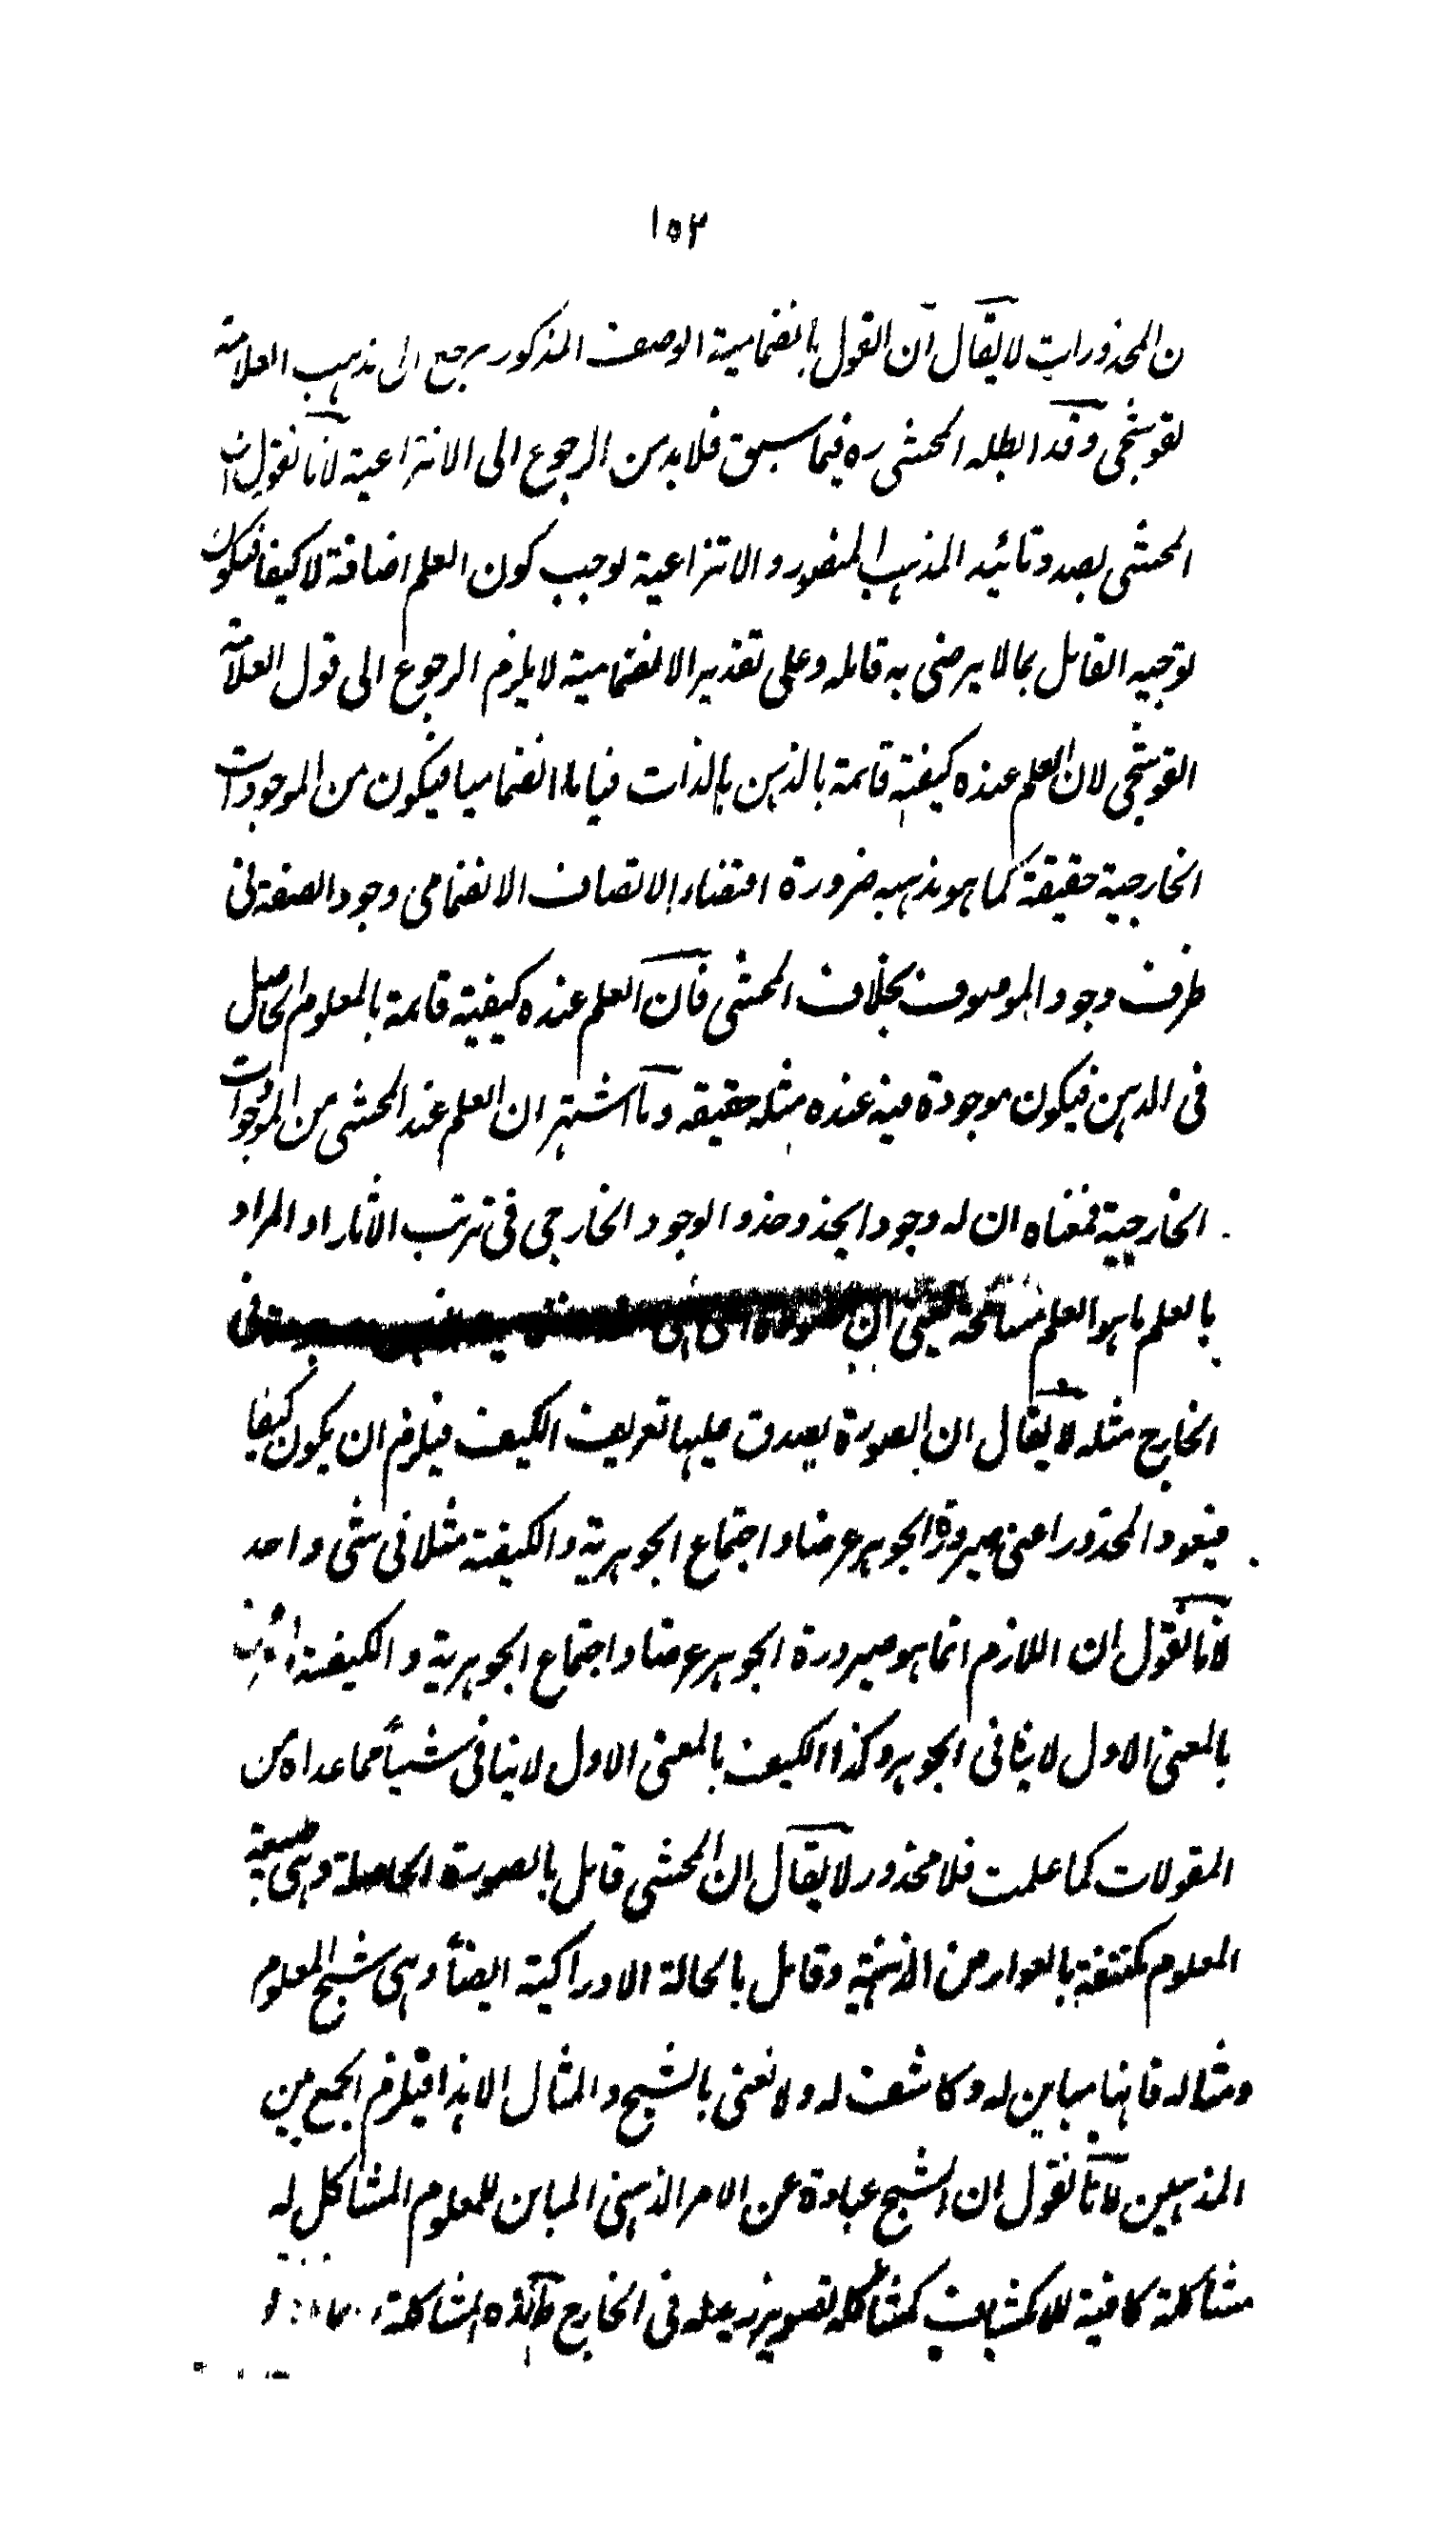 ١٥٢
ن المحذورات لا يقال ان القول بانضمامية الوصف المذكور يرجع الى مذهب العلامة
لقوشجى وقد ابطله المحشى ره فيما سبق فلا بد من الرجوع الى الانتزاعية لانا نقول ان
المحشى بصدد تائيد المذهب المنصور والانتزاعية توجب كون العلم اضافة لا كيفا فيكون
توجيه القائل بما لا يرضى به قائله وعلى تقدير الانضمامية لا يلزم الرجوع الى قول العلامة
القوشجى لان العلم عنده كيفية قائمة بالذهن بالذات قياما انضماميا فيكون من الموجودات
الخارجية حقيقة كما هو مذهبه ضرورة اقتضاء الاتصاف الانضمامى وجود الصفة فى
ظرف وجود الموصوف بخلاف المحشى فان العلم عنده كيفية قائمة بالمعلوم الحاصل
فى الذهن فيكون موجودة فيه عنده مثله حقيقه وما اشتهر ان العلم عند المحشى من الموجودات
الخارجية فمعناه ان له وجودا يحذو حذو الوجود الخارجى فى ترتب الاثار او المراد
بالعلم ما هو العلم مسامحة اعنى ان فى
الخارج مثله لا يقال ان الصورة يصدق عليها تعريف الكيف فيلزم ان يكون كيفا
فيعود المحذور اعنى صيرورة الجوهر عرضا واجتماع الجوهرية والكيفية مثلا فى شئ واحد
لانا نقول ان اللازم انما هو صيرورة الجوهر عرضا واجتماع الجوهرية والكيفية
بالمعنى الاول لا ينافى الجوهر وكذا الكيف بالمعنى الاول لا ينافى شيأ مما عداه من
المقولات كما علمت فلا محذور لا يقال ان المحشى قائل بالصورة الحاصلة وهى
المعلوم مكتنفة بالعوارض الذهنية وقائل بالحالة الادراكية ايضا وهى شبح المعلوم
ومثاله فانها مباين له وكاشف له ولا نعنى بالشبح والمثال الا هذا فيلزم الجمع بين
المذهبين لانا نقول ان الشبح عبارة عن الامر الذهنى المباين للمعلوم المشاكل له
مشاكلة كافية للانكشاف كمشاكلة تصوير زيد مثله فى الخارج المشاكلة